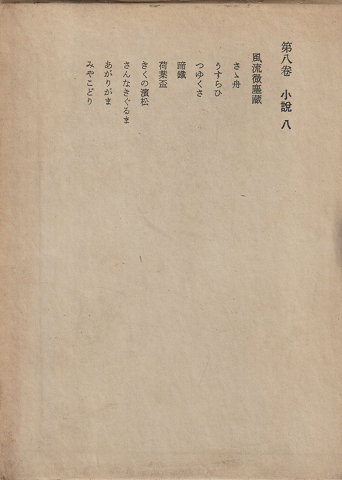 第八卷 小說 八
風流微塵藏
さゝ舟
うすらひ
つゆくさ
蹄鐵
荷葉盃
きくの濱松
さんなきぐるま
あがりがま
みやこどり